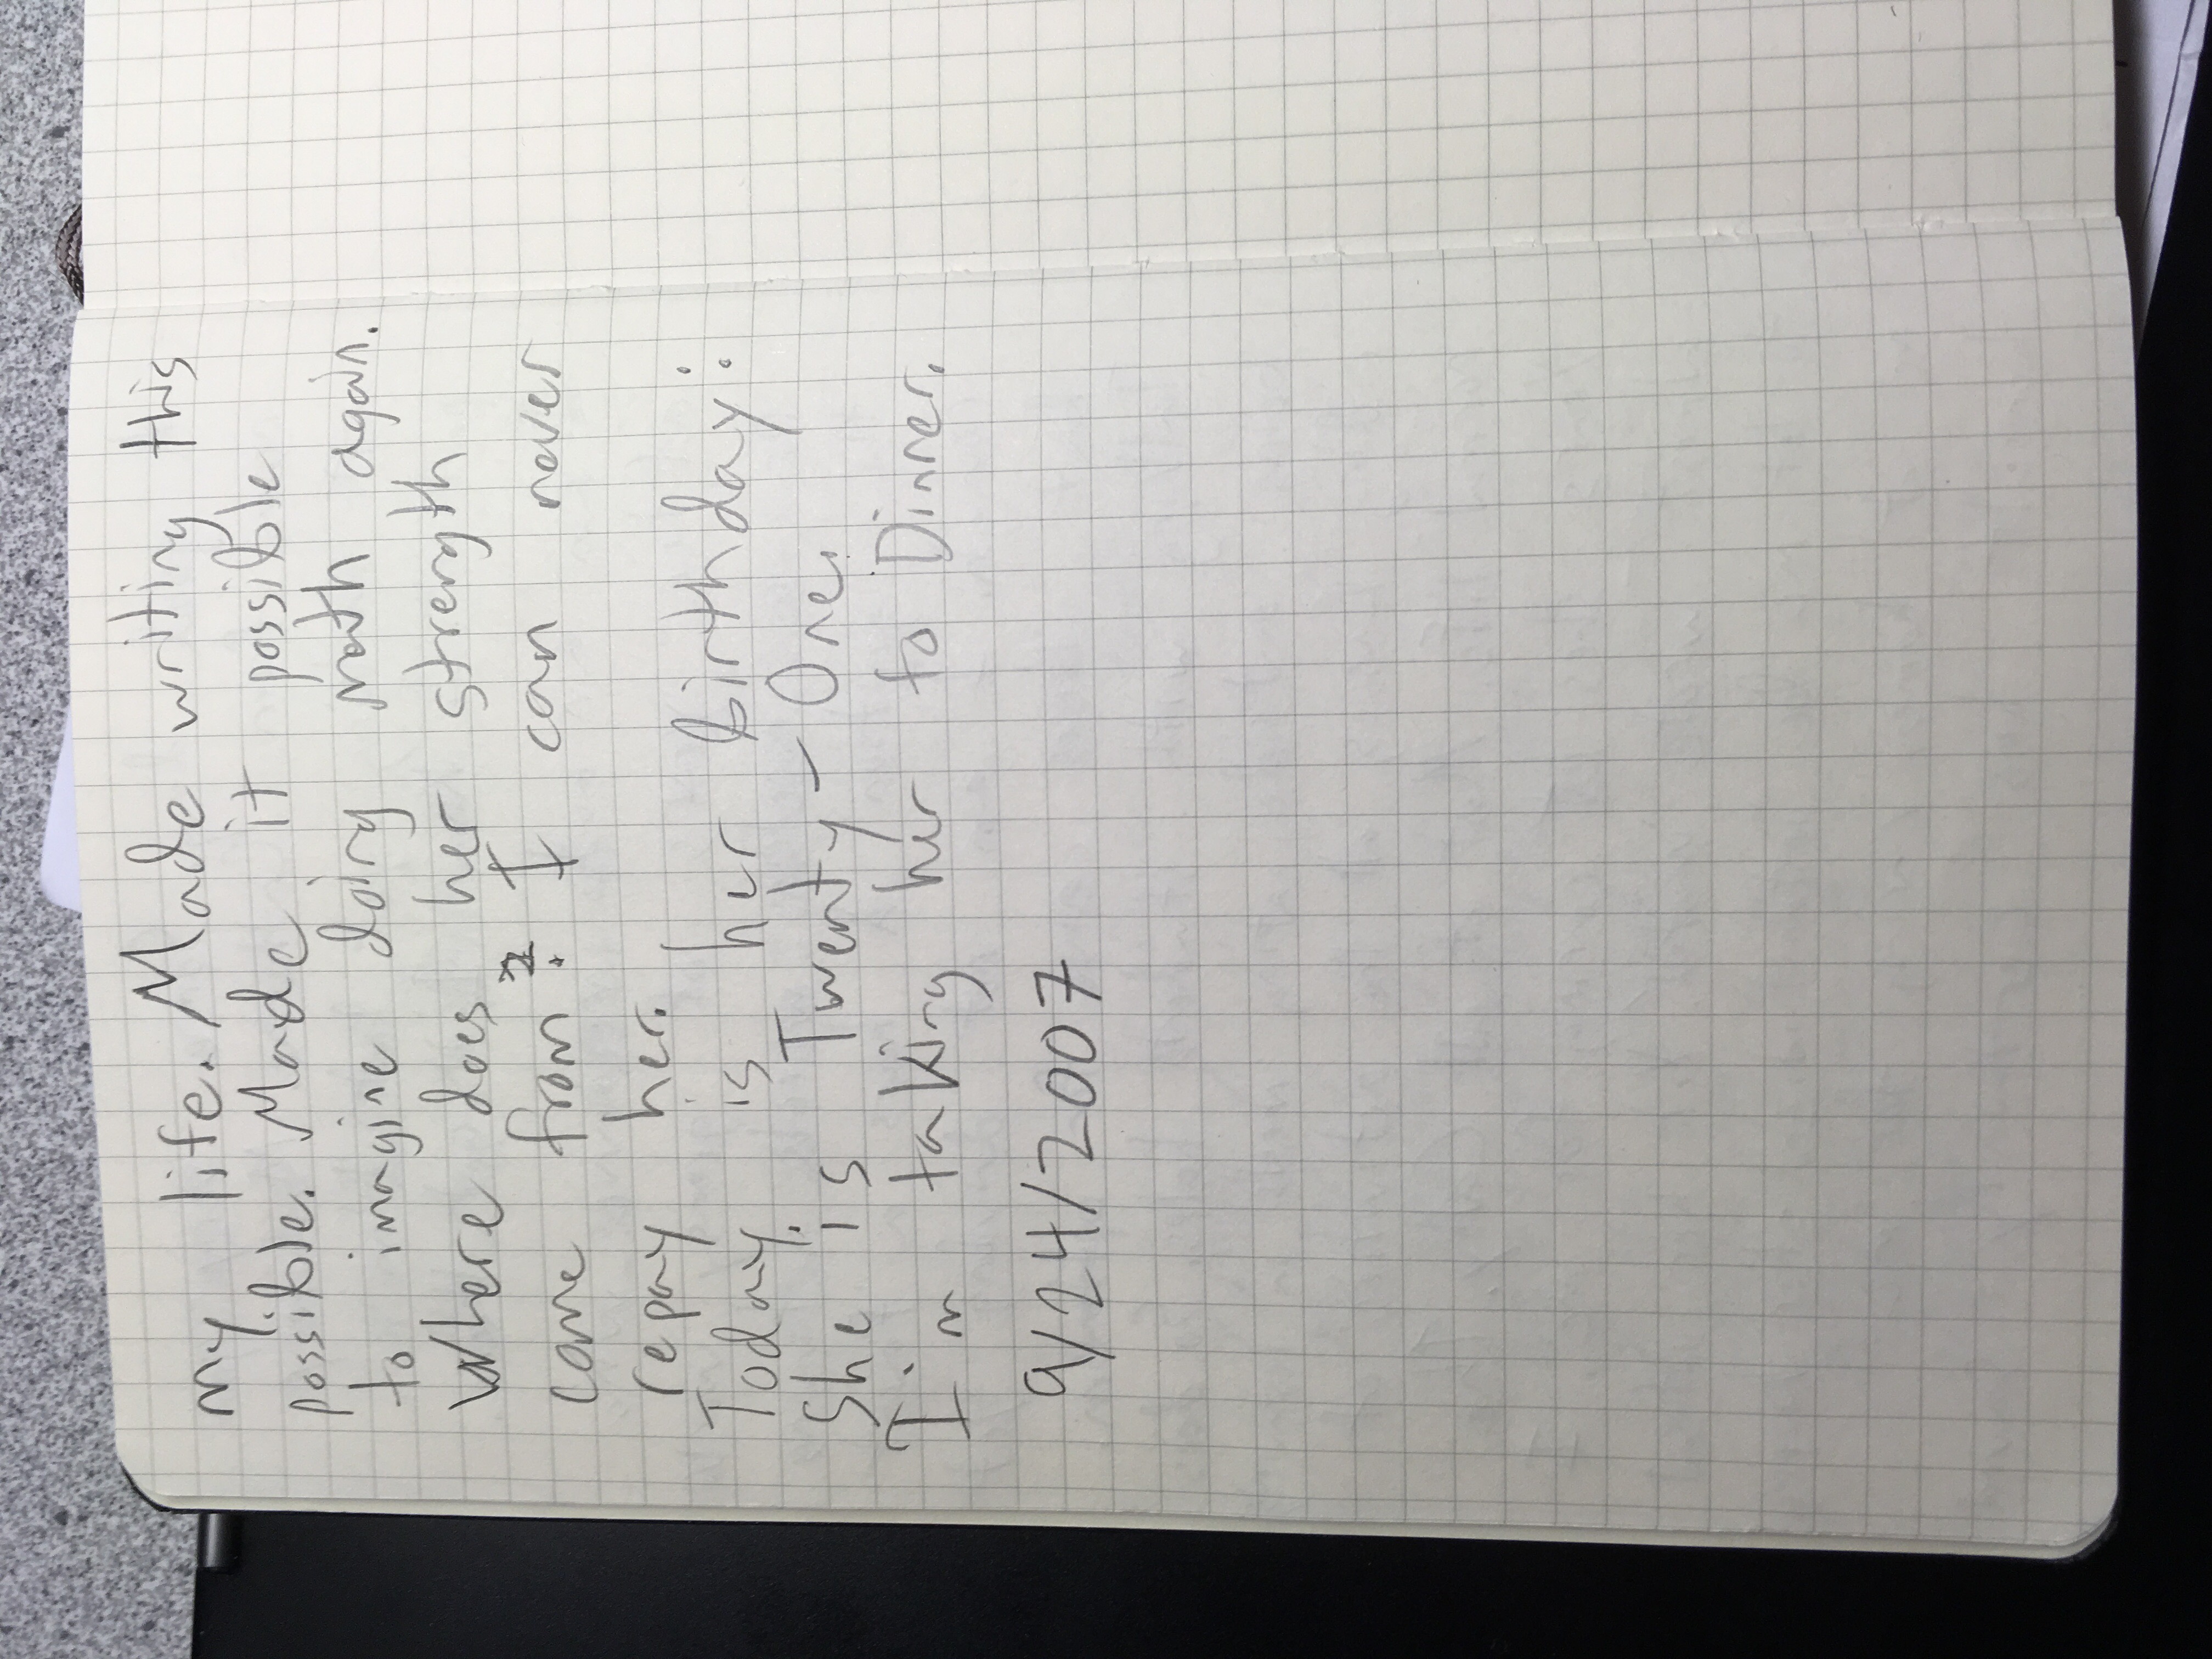 my life. Made writing this
possible. Made it possible
to imagine doing math again.
Where does her strength
come from? I can never
repay her.
Today is her birthday:
She is Twenty-One.
I'm taking her to Dinner.
9/24/2007